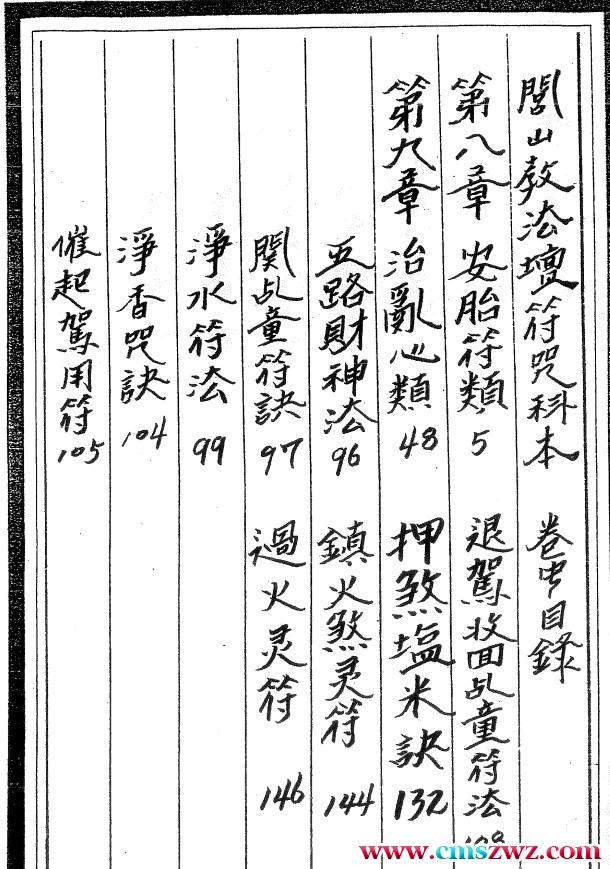 閭山教法壇符咒科本 卷中目錄
第八章 安胎符類 5 退駕收回乩童符法
第九章 治亂心類 48 押煞塩米訣 132
五路財神法 96 鎮火煞灵符 144
関乩童符訣 97 過火灵符 146
淨水符法 99
淨香咒訣 104
催起駕用符 105
www.cmszwz.com